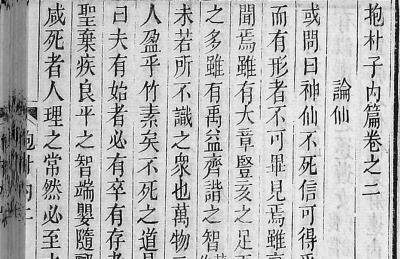 抱朴子內篇卷之二
論仙
或問曰神仙不死信可得
而有形者不可畢見焉雖
聞焉雖有大章豎亥之足
之多雖有禹益齊諧之智
未若所不識之衆也萬物
人盈乎竹素矣不死之道
曰夫有始者必有卒有存
聖棄疾良平之智端嬰隨酈
咸死者人理之常然必至